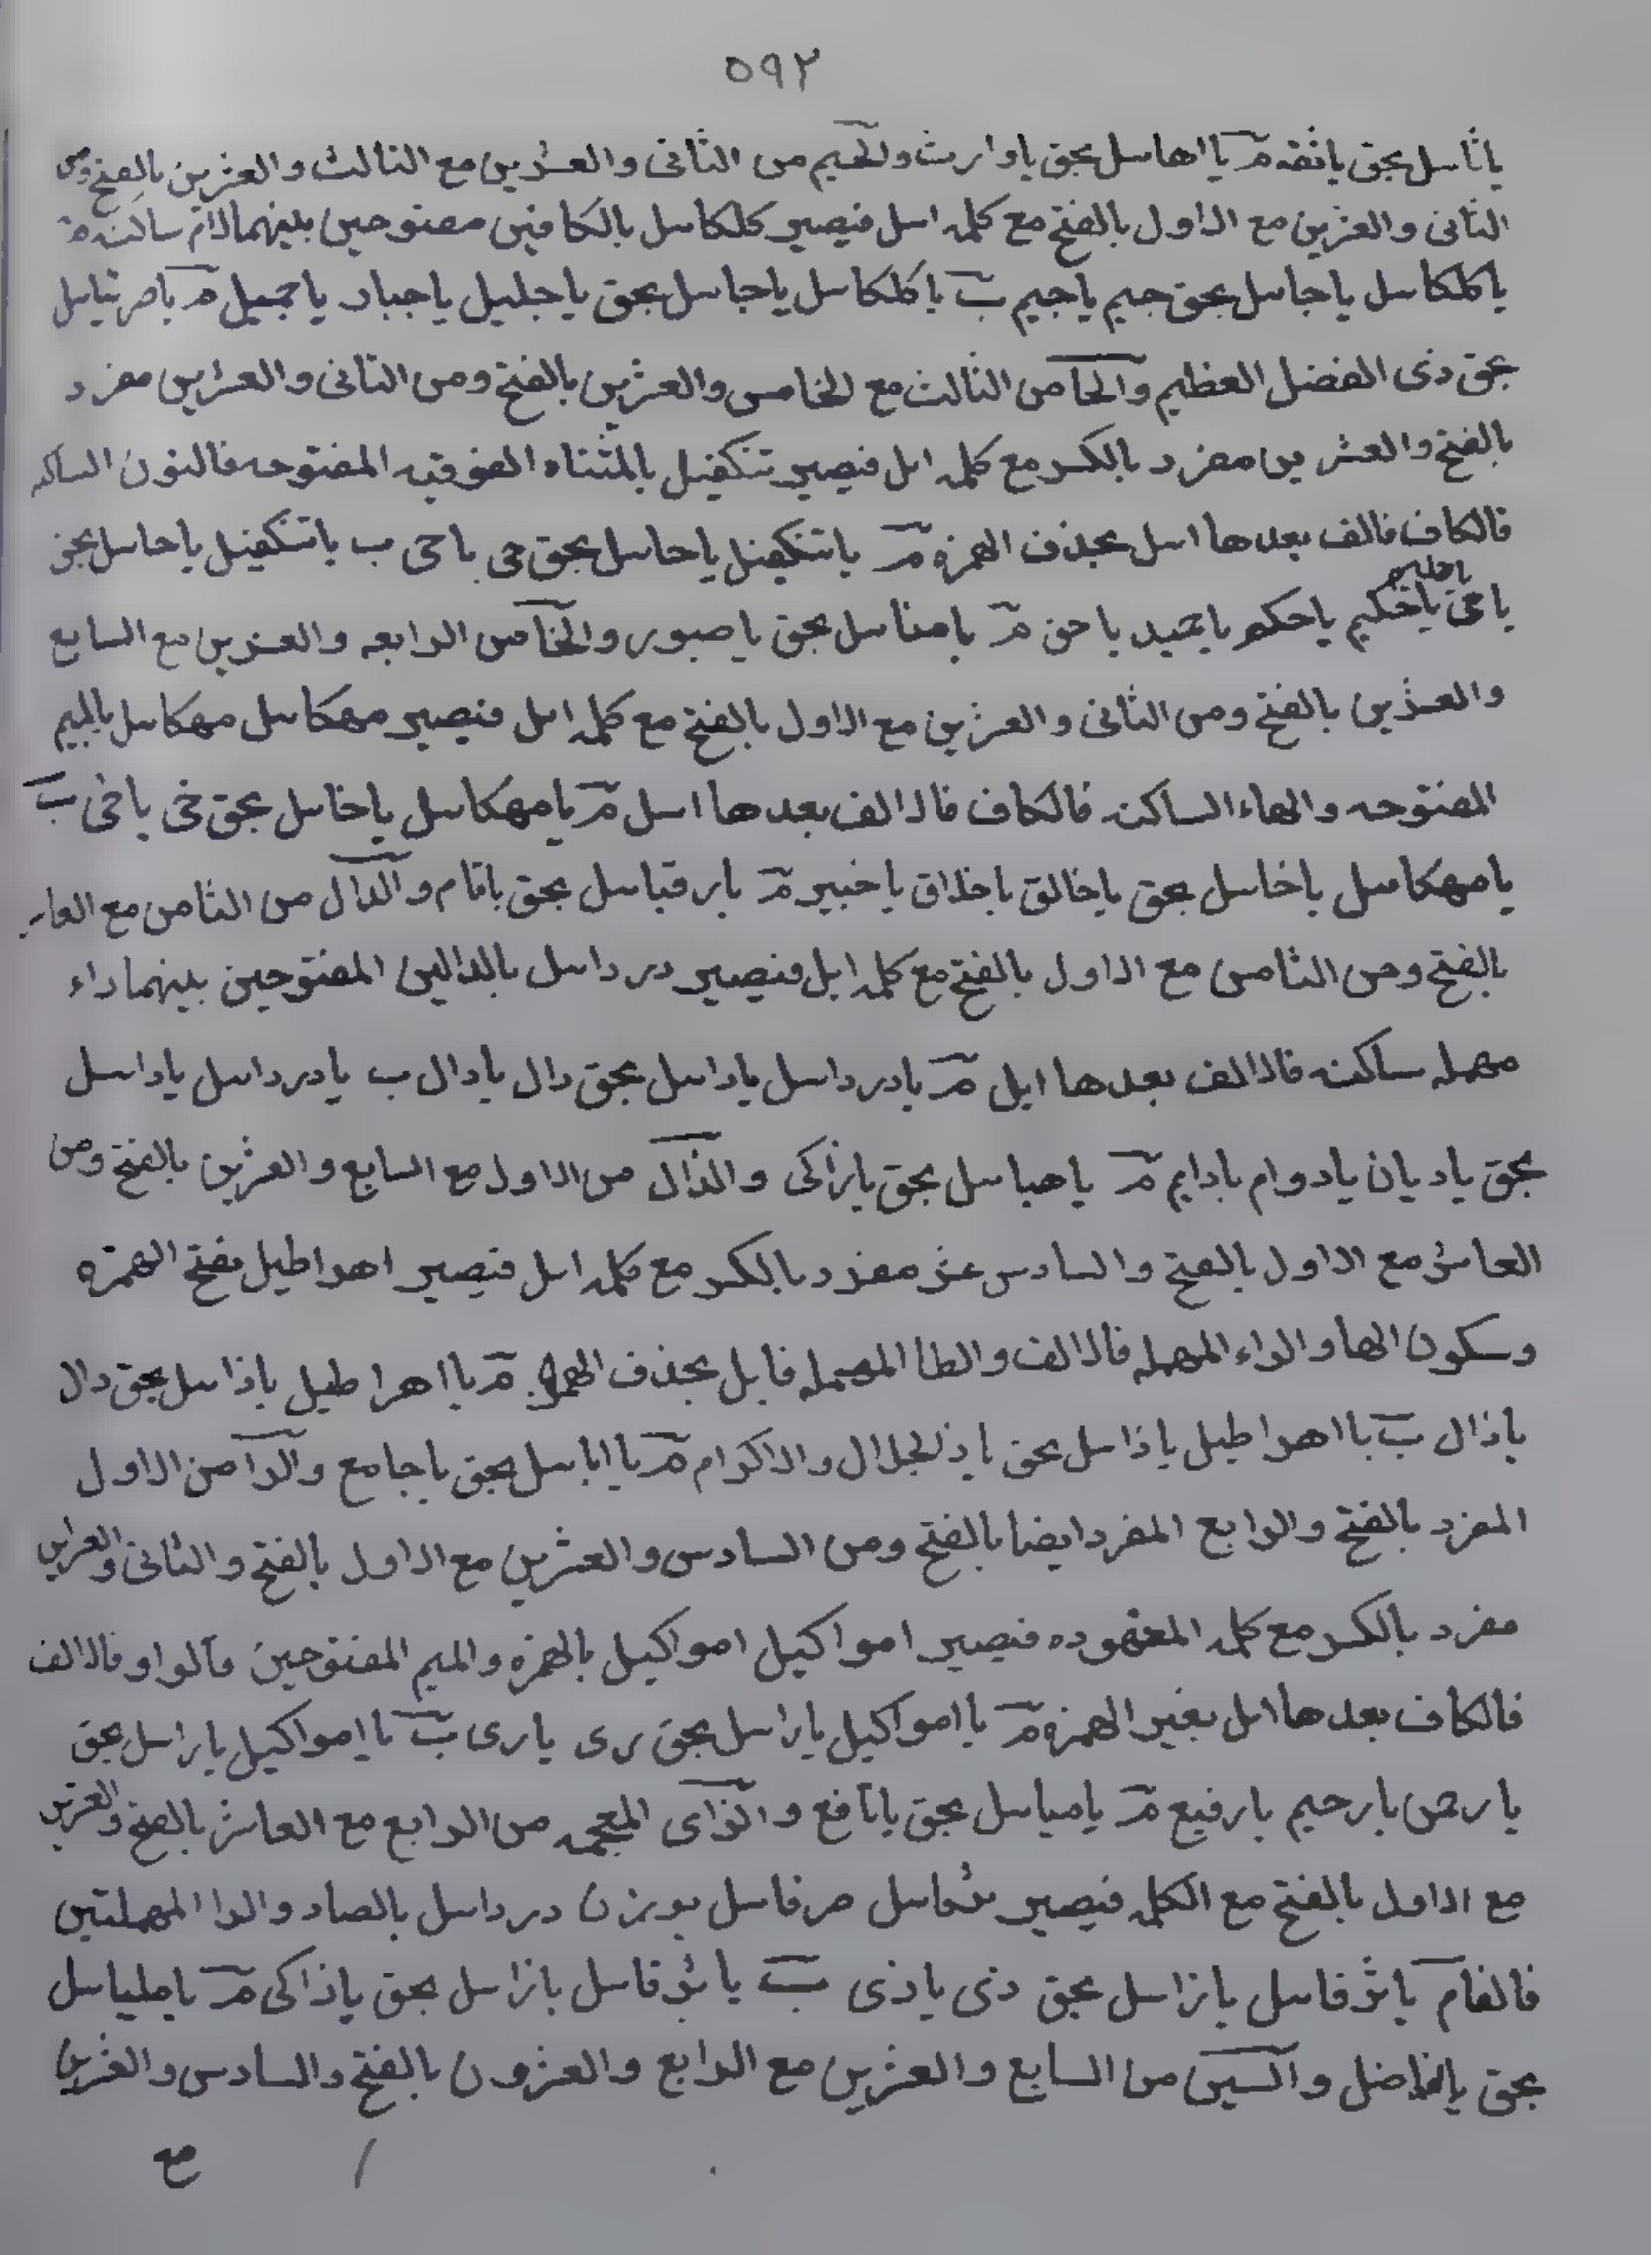 ٥٩٢
يا ثاسل بحق يا ثقه م يا اهاسل بحق يا وارث والجيم من الثانى والعشرين مع الثالث والعشرين بالفتح ومن
الثانى والعشرين مع الاول بالفتح مع كلمه اسل فيصير كلكاسل بالكافين مفتوحين بينهما لام ساكنه م
يا كلكاسل يا جاسل بحق جيم يا جيم ب يا كلكاسل يا جاسل بحق يا جليل يا جبار يا جميل م
بحق ذى الفضل العظيم والحا من الثالث مع الخامس والعشرين بالفتح ومن الثانى والعشرين مفرد
بالفتح والعشرين مفرد بالكسر مع كلمه ايل فيصير تنكفيل بالمثناه الفوقيه المفتوحه فالنون الساكنه
فالكاف فالف بعدها اسل بحذف الهمزه م يا تنكفيل يا حاسل بحق حى يا حى ب يا تنكفيل يا حاسل بحق
يا حى يا حكيم يا حليم يا حكم يا حميد يا حق م يا مناسل بحق يا صبور والخا من الرابعه والعشرين مع السابع
والعشرين بالفتح ومن الثانى والعشرين مع الاول بالفتح مع كلمه ايل فيصير مهكاسل مهكاسل بالميم
المفتوحه والهاء الساكنه فالكاف فالالف بعدها اسل م يا مهكاسل يا خاسل بحق خى يا خى ب
يا مهكاسل يا خاسل بحق يا خالق يا خلاق يا خبير م يا رقباسل بحق والدال من الثامن مع العاشر
بالفتح ومن الثامن مع الاول بالفتح مع كلمه ايل فيصير درداسل بالدالين المفتوحين بينهما راء
مهمله ساكنه فالالف بعدها ايل م يا درداسل يا داسل بحق دال يا دال ب يا درداسل يا داسل
بحق يا ديان يا دوام يا دايم م يا هباسل بحق يا زاكى والذال من الاول مع السابع والعشرين بالفتح ومن
العاشر مع الاول بالفتح والسادس عشر مفرد بالكسر مع كلمه ايل فيصير اهراطيل بفتح الهمزه
وسكون الها والراء المهمله فالالف والطا المهمله فايل بحذف الهمزه م يا اهراطيل يا ذاسل بحق دال
يا ذال ب يا اهراطيل يا ذاسل بحق يا ذالجلال والاكرام م يا اباسل بحق يا جامع والرا من الاول
المفرد بالفتح والرابع المفرد ايضا بالفتح ومن السادس والعشرين مع الاول بالفتح والثانى والعشرين
مفرد بالكسر مع كلمه المعهوده فيصير امواكيل امواكيل بالهمزه والميم المفتوحين فالواو فالالف
فالكاف بعدها ايل بغير الهمزه م يا امواكيل يا راسل بحق رى يا رى ب يا امواكيل يا راسل بحق
يا رحمن يا رحيم يا رفيع م يا مياسل بحق يا نافع والزاى المعجمه من الرابع مع العاشر بالفتح والعشرين
مع الاول بالفتح مع الكلمه فيصير صرفاسل بوزن درداسل بالصاد والرا المهملتين
فالفا م يا بازاسل بحق ذى يا ذى ب يا بازاسل بحق يا ذاكى م
بحق يا فاضل والسين من السابع والعشرين مع الرابع والعشرون بالفتح والسادس والعشرين
مع